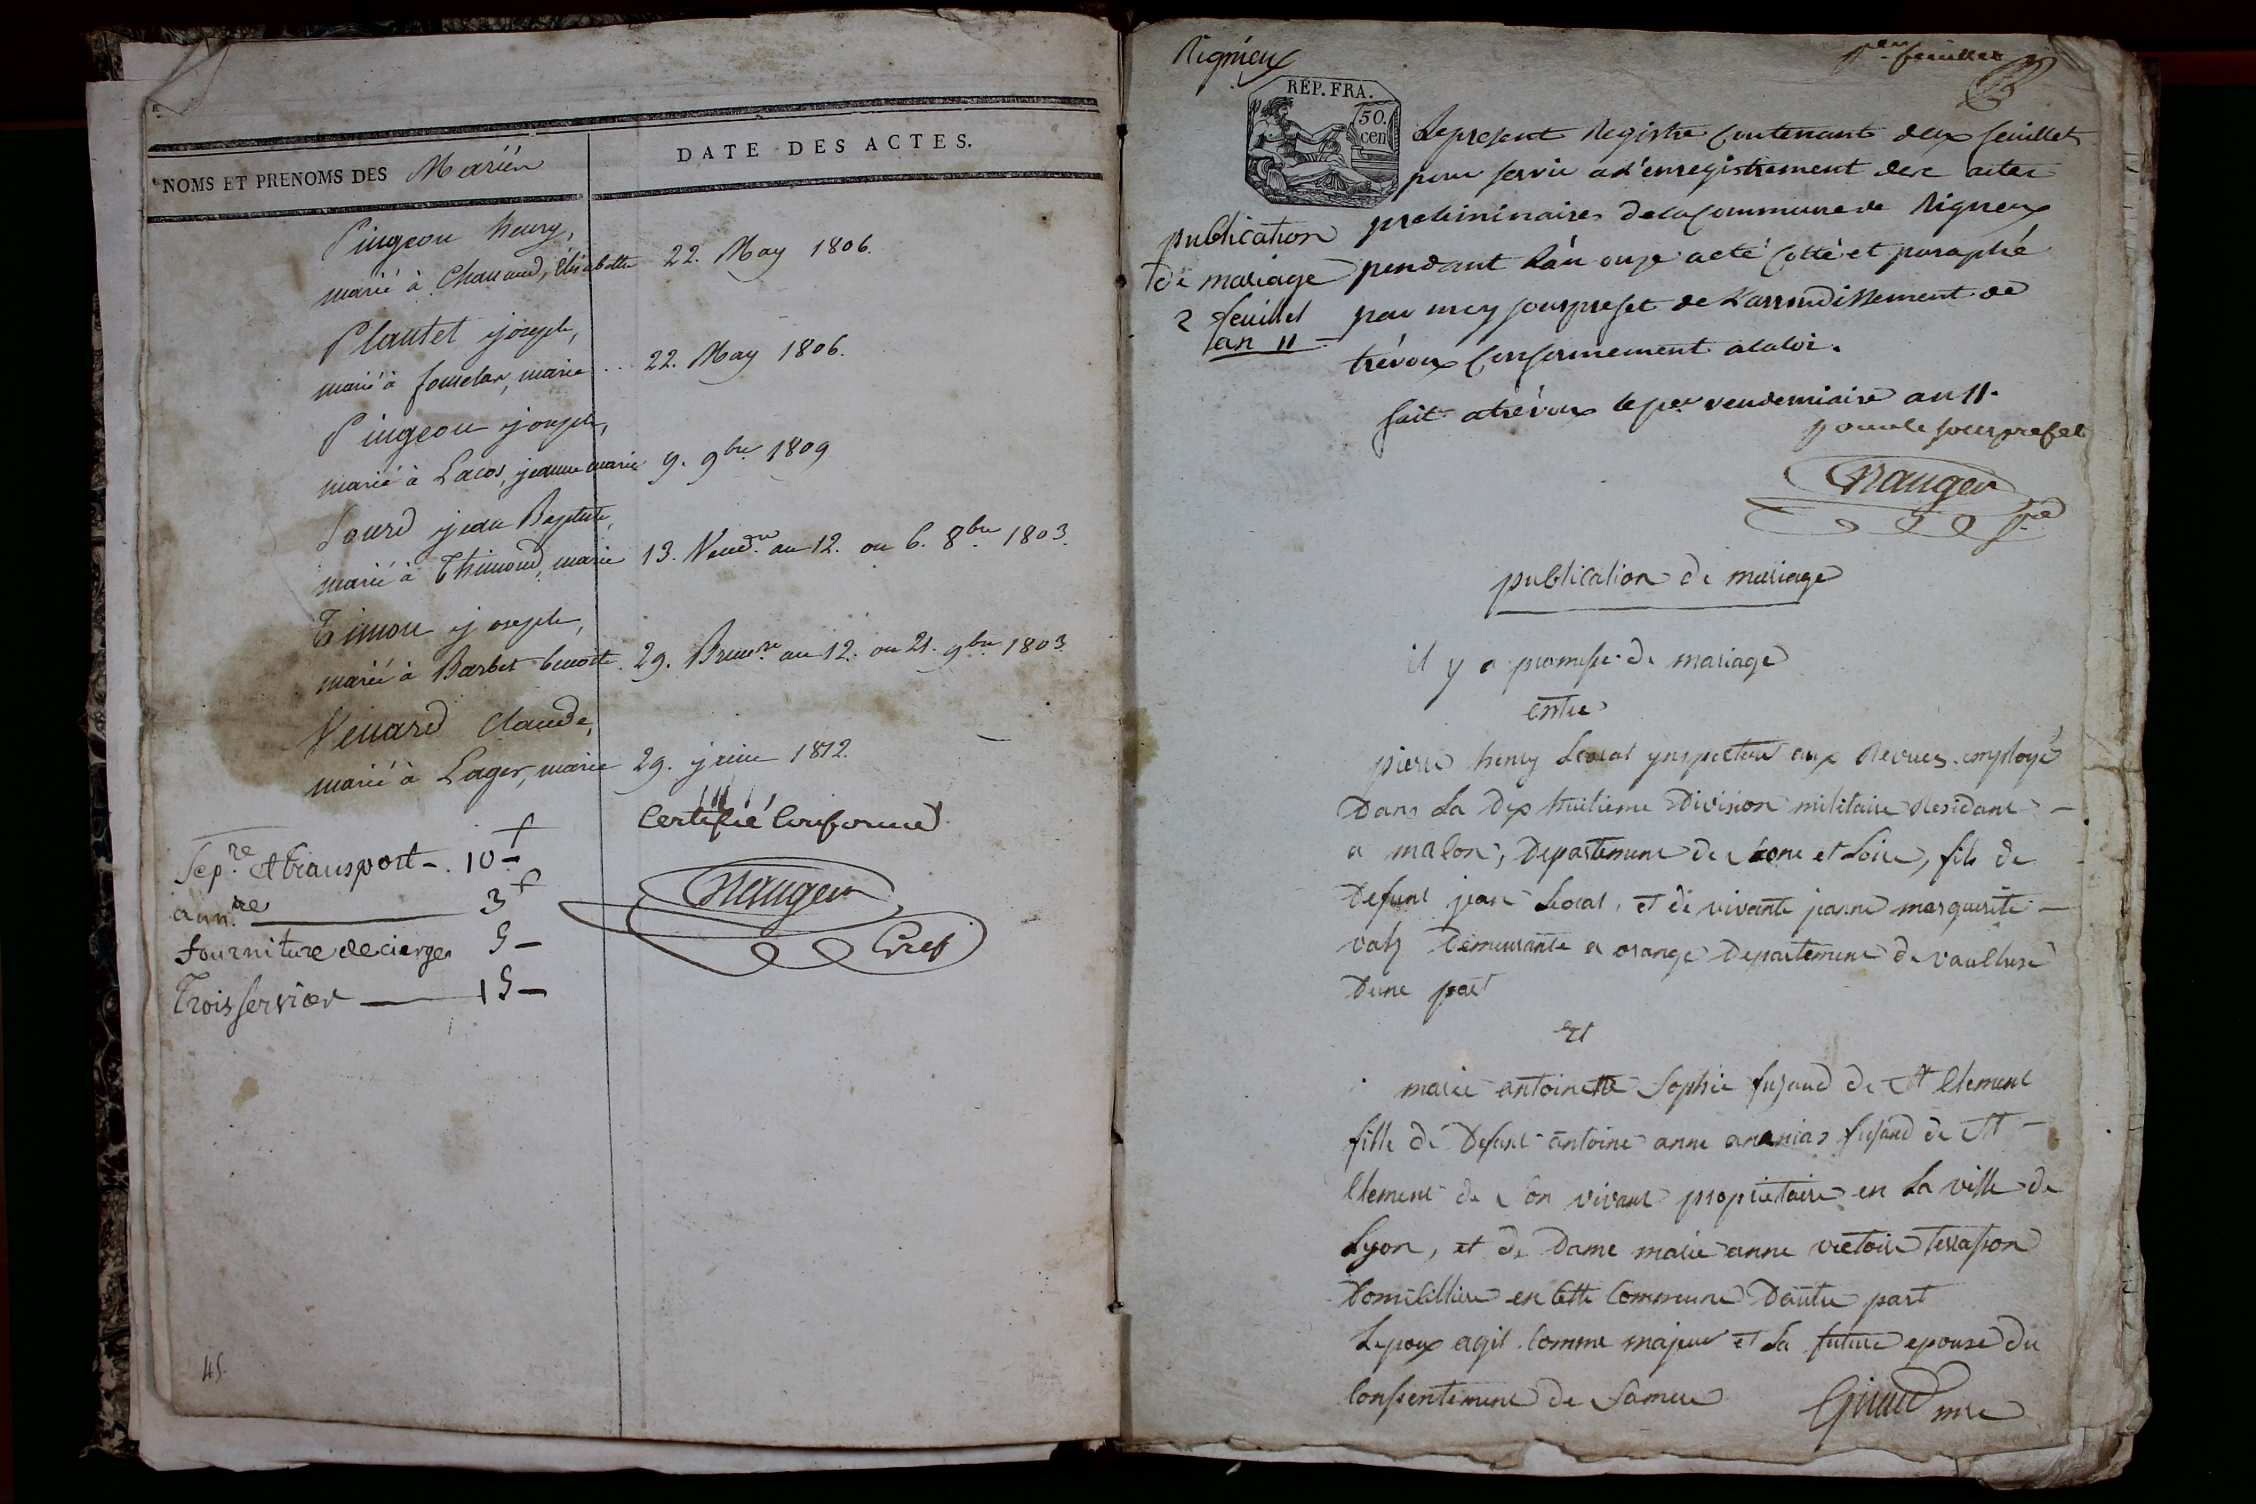 NOMS ET PRENOMS DES Mariés
DATE DES ACTES.
Pingeon henry,
marié à Chanaud, Elisabette 22. May 1806.
Plantet joseph,
marié à marie ... 22. May 1806.
Pingeon joseph,
marié à Lacos, jeanne marie 9. 9bre 1809
jean Baptiste,
marié à Thimond, marie 13. Vendre. an 12. ou 6. 8bre 1803.
Timon joseph,
marié à Barbet benoite. 29. Brumre. an 12. ou 21. 9bre 1803.
Venard Claude,
marié à Lager, marie 29. juin 1812.
Certifié Conforme
Nauger
Gref
Sepre. et transport - 10 -
annre 3
fourniture de cierges 5 -
Trois services 15 -
45.
Rignieux
1er feuillet
REP. FRA.
50. cen
publication
de mariage
2 feuillet
an 11
Le present Registre Contenant deux feuillet
pour servir a l'enregistrement des actes
preliminaires de la Commune de Rigneux
pendant l'an onze a eté Cotté et paraphé
par moy souspreset de L'arrondissement de
trévoux Conformement a la loi.
fait a trévoux le per vendemiaire an 11.
pour le sousprefet
Nauger
publication de mariage
il y a promesse de mariage
entre
pierre henry Leorat ynspecteur aux Revues employé
Dans La Dix huitieme Division militaire Residant
a macon, Departement de saone et Loire, fils de
Defunt jean Leorat, et de vivante jeanne marguerite
Demeurante a orange Departement de vaucluse
Dune part
et
marie antoinette Sophie fuzand de St Clement
fille de Defunt antoine anne ananias fusand de St
Clement de son vivant propriétaire en La ville de
Lyon, et de Dame marie anne victoire terrasson
Domicilliée en cette Commune Dautre part
Lepoux agit Comme majeur et La future epouse du
Consentement de Samere
mre